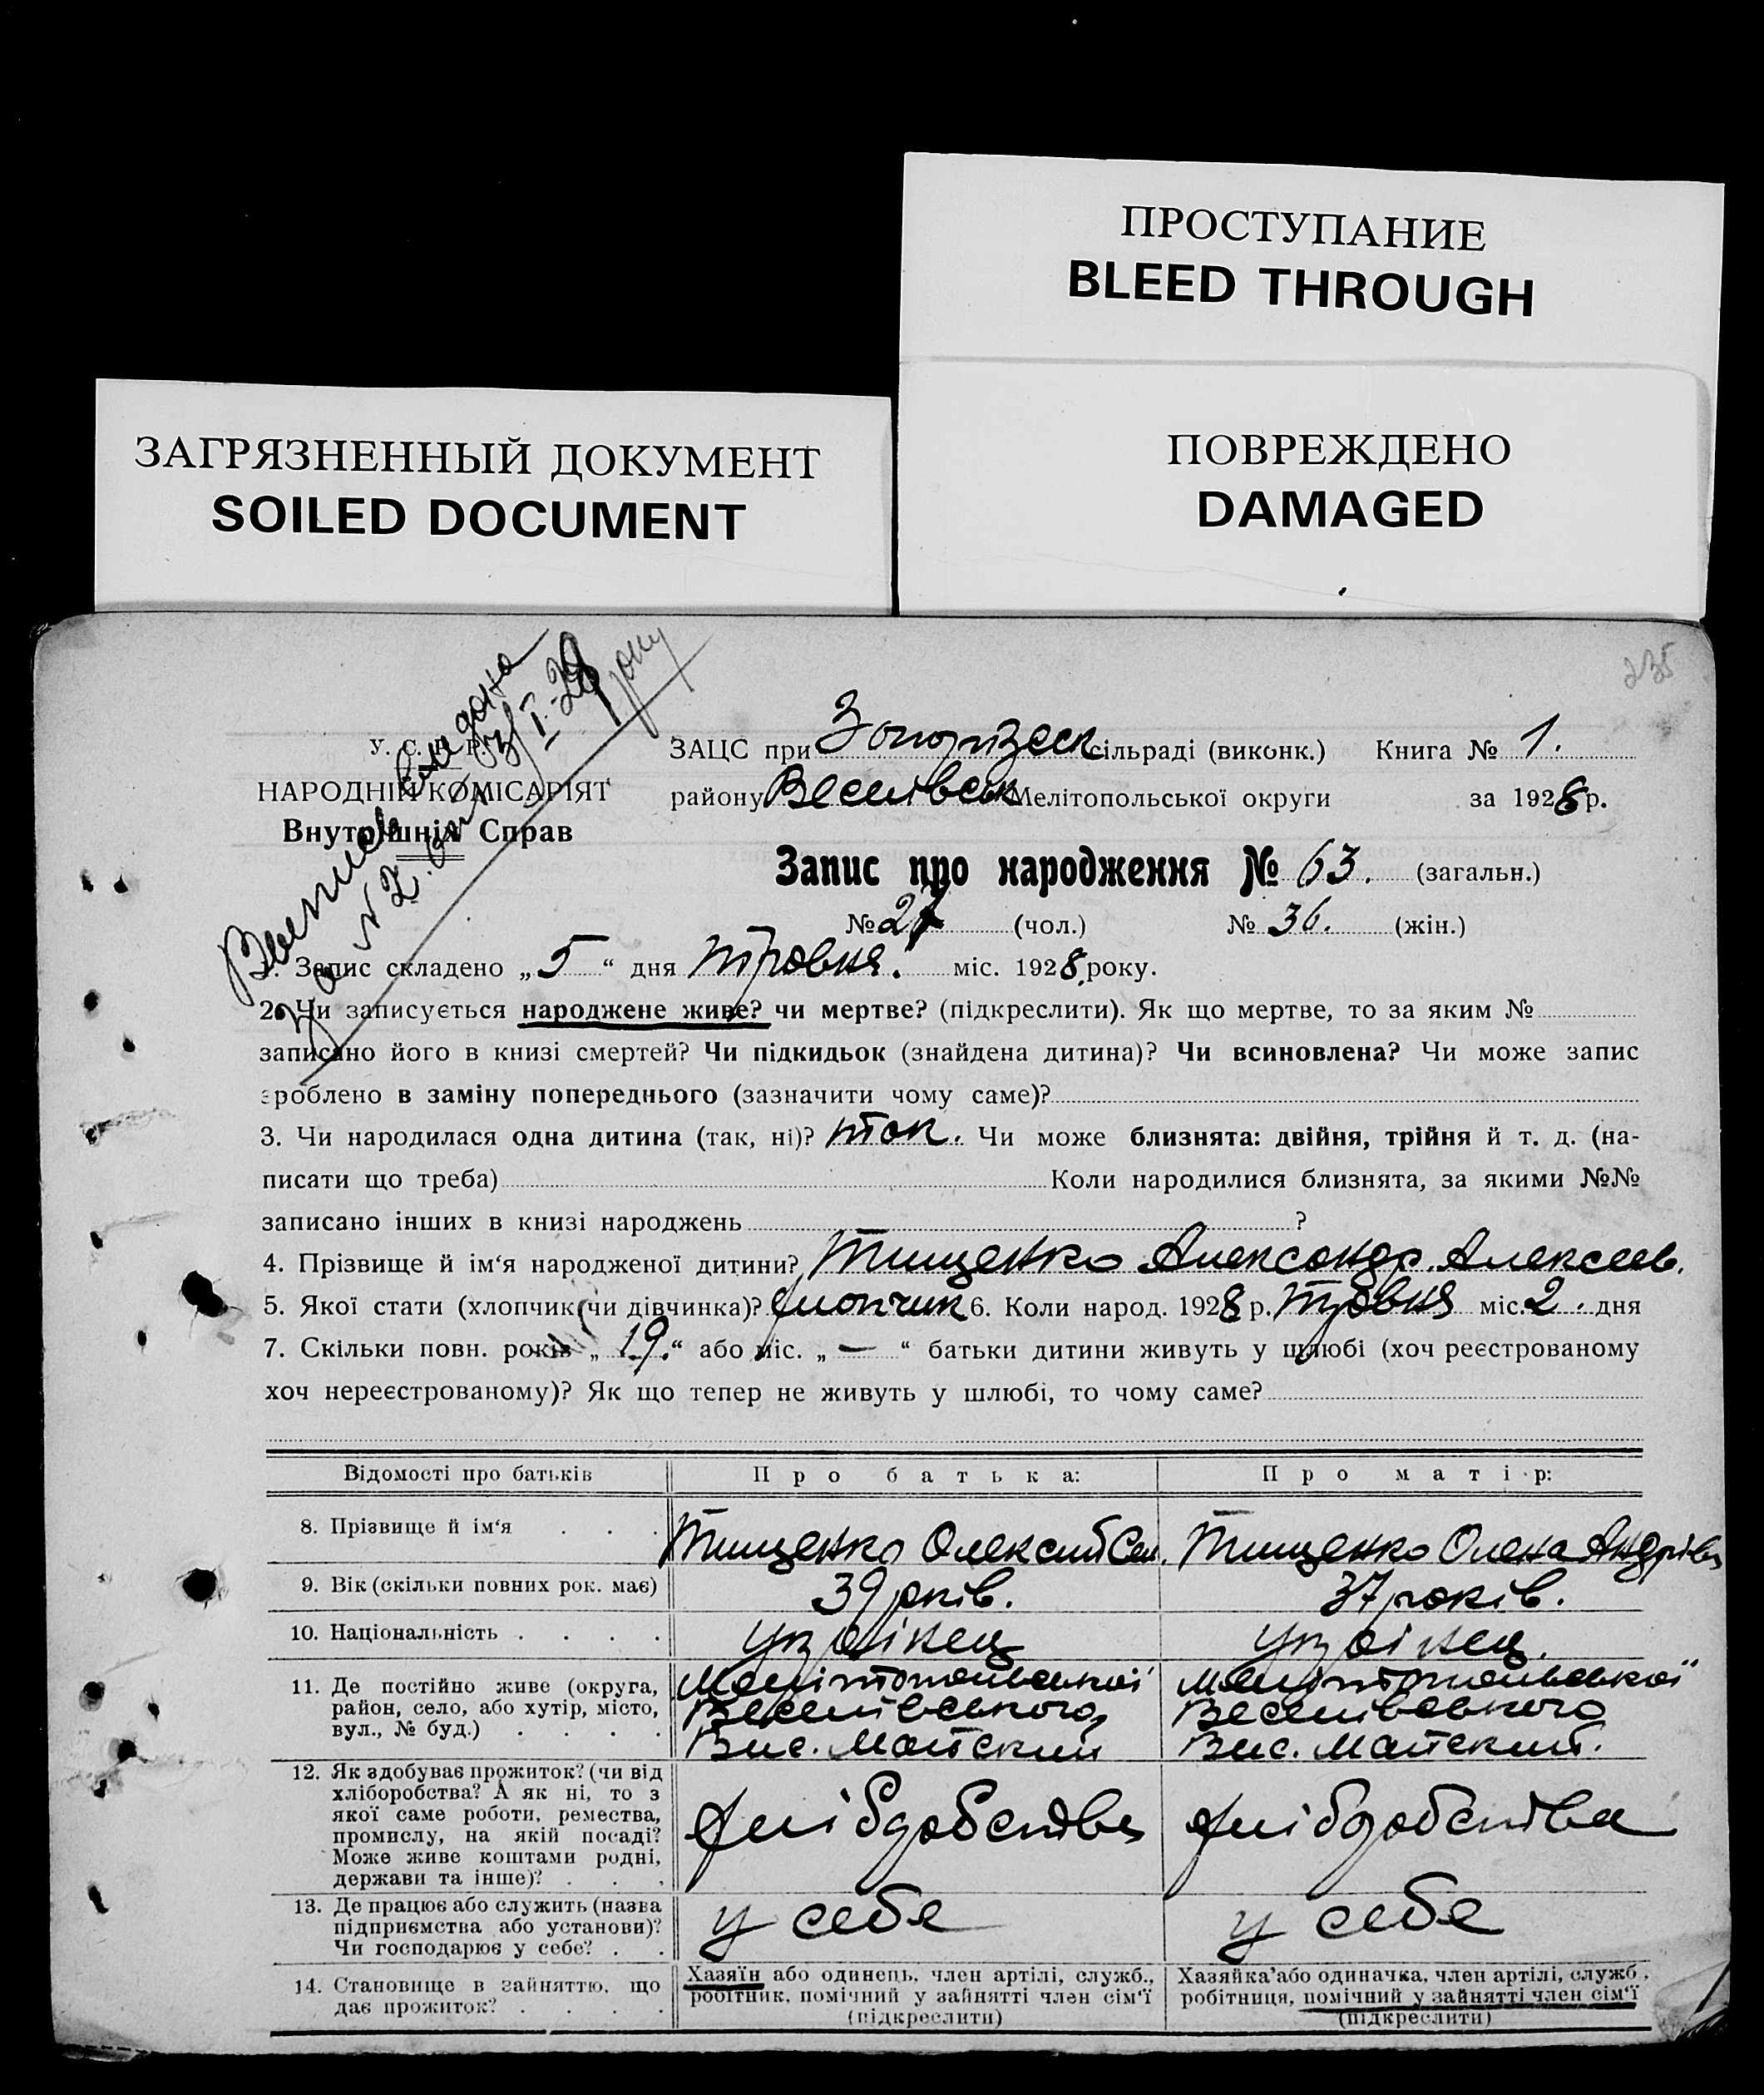 ПРОСТУПАНИЕ
BLEED THROUGH
ПОВРЕЖДЕНО
DAMAGED
ЗАГРЯЗНЕННЫЙ ДОКУМЕНТ
SOILED DOCUMENT
235
Выпись видана
за № 2 от 3/I-28 року
У. С. Р. Р.
НАРОДНІЙ КОМІСАРІЯТ
Внутрішніх Справ
ЗАЦС при сільраді (виконк.) Книга № 1.
району Веселівськ Мелітопольської округи за 1928 р.
Запис про народження № 63. (загальн.)
№ 27 (чол.) № 36. (жін.)
1. Запис складено „5“ дня Травня. міс. 1928 року.
2. Чи записується народжене живе? чи мертве? (підкреслити). Як що мертве, то за яким №
записано його в книзі смертей? Чи підкидьок (знайдена дитина)? Чи всиновлена? Чи може запис
зроблено в заміну попереднього (зазначити чому саме)?
3. Чи народилася одна дитина (так, ні)? так. Чи може близнята: двійня, трійня й т. д. (на-
писати що треба) Коли народилися близнята, за якими №№
записано інших в книзі народжень ?
4. Прізвище й ім‘я народженої дитини? Тищенко Александр. Алексеев.
5. Якої стати (хлопчик чи дівчинка)? хлопчик 6. Коли народ. 1928 р. Травня міс. 2. дня
7. Скільки повн. років „19.“ або міс. „—“ батьки дитини живуть у шлюбі (хоч реєстрованому
хоч нереєстрованому)? Як що тепер не живуть у шлюбі, то чому саме?
Відомості про батьків Про батька: Про матір:
8. Прізвище й ім‘я . . . Тищенко Олексий Сем. Тищенко Олена Андрівн
9. Вік (скільки повних рок. має) 39 рків. 37 років.
10. Національність . . . . Українец Українец.
11. Де постійно живе (округа, Мелітопольської Мелітопольської
район, село, або хутір, місто, Веселівського Веселівського
вул., № буд.) . . . . Вис. Майский Вис. Майский.
12. Як здобуває прожиток? (чи від
хліборобства? А як ні, то з
якої саме роботи, ремества,
промислу, на якій посаді? хліборобства хліборобства
Може живе коштами родні,
держави та інше)? . . .
13. Де працює або служить (назва
підприємства або установи)? у себе у себе
Чи господарює у себе? . .
14. Становище в зайняттю, що Хазяїн або одинець, член артілі, служб., Хазяйка або одиначка, член артілі, служб.,
дає прожиток? . . . . робітник, помічний у зайнятті член сім‘ї робітниця, помічний у зайнятті член сім‘ї
(підкреслити) (підкреслити)